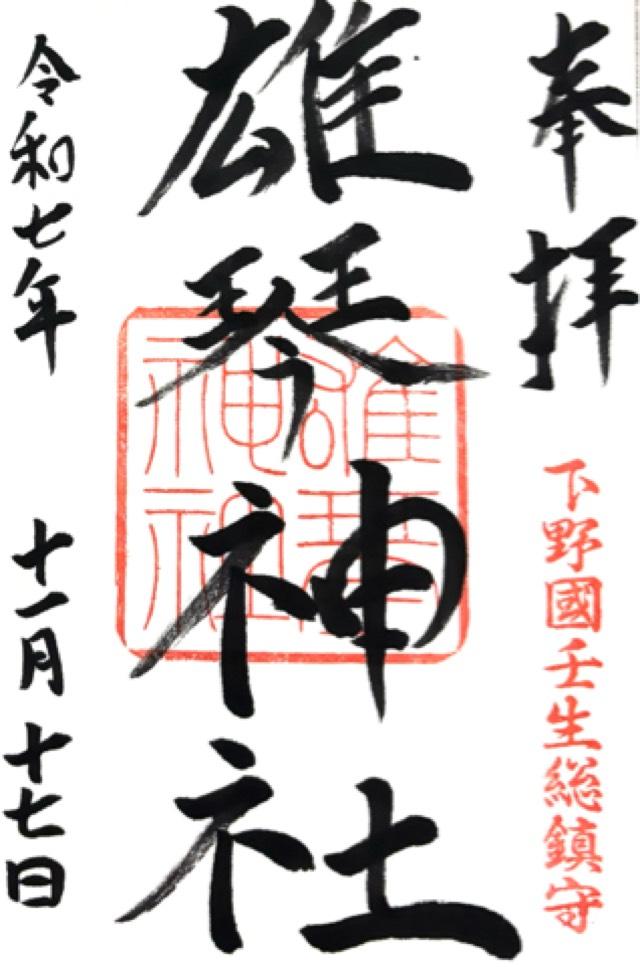 奉拝
下野國壬生総鎮守
雄琴神社
雄琴神社
令和七年 十一月 十七日